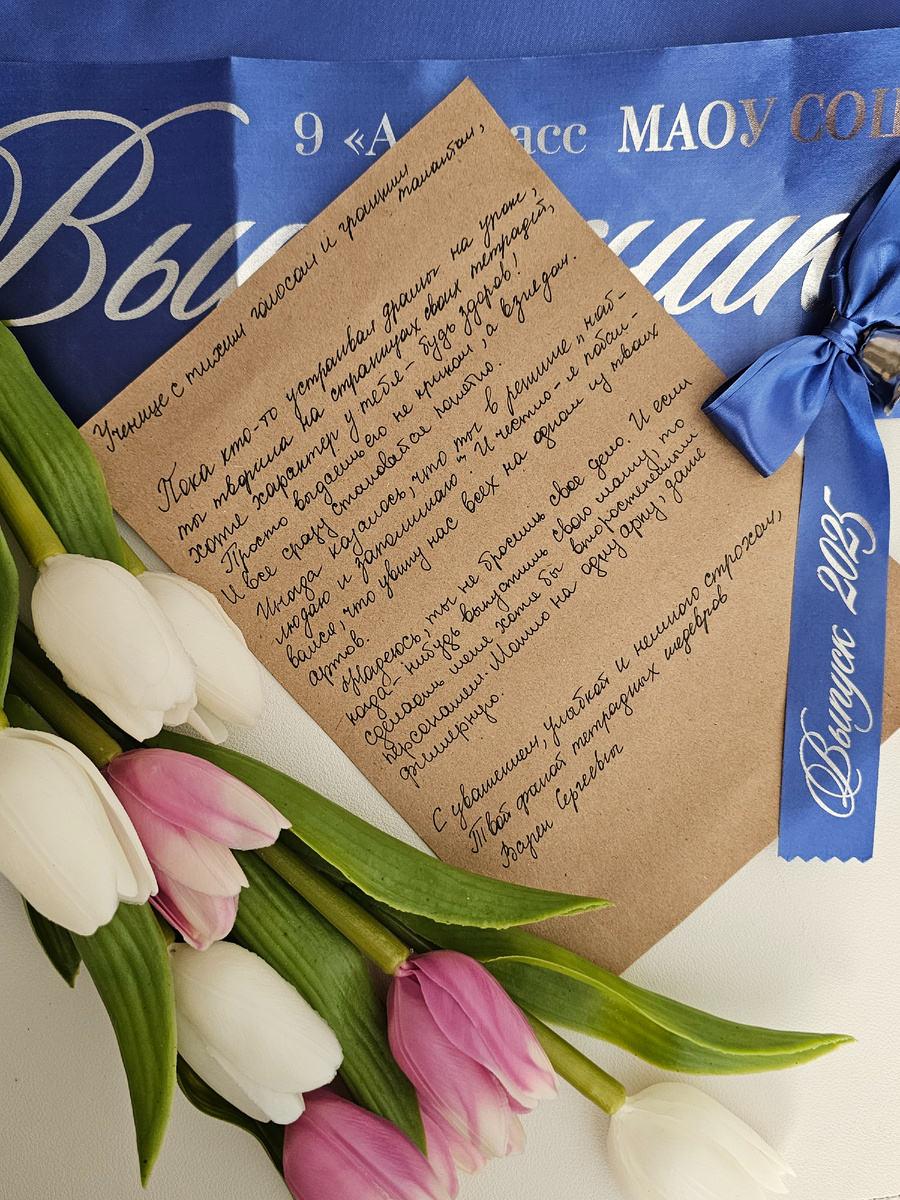 9 «А» класс МАОУ СОШ
Выпускник
Ученице с тихим голосом и громким
талантом,
Пока кто-то устраивал драмы на уроке,
ты творила на страницах своих тетрадей,
хотя характер у тебя - будь здоров!
Просто выдаешь его не криком, а взглядом.
И все сразу становится понятно.
Иногда казалось, что ты в режиме "наб-
людаю и запоминаю". И честно - я побаи-
вался, что увижу нас всех на одном из твоих
артов.
Надеюсь, ты не бросишь свое дело. И если
когда-нибудь выпустишь свою мангу, то
сделаешь меня хотя бы второстепенным
персонажем. Можно на одну арку, даже
филлерную.
С уважением, улыбкой и немного страхом,
Твой фанат тетрадных шедевров
Варен Сергеевич
Выпуск 2025